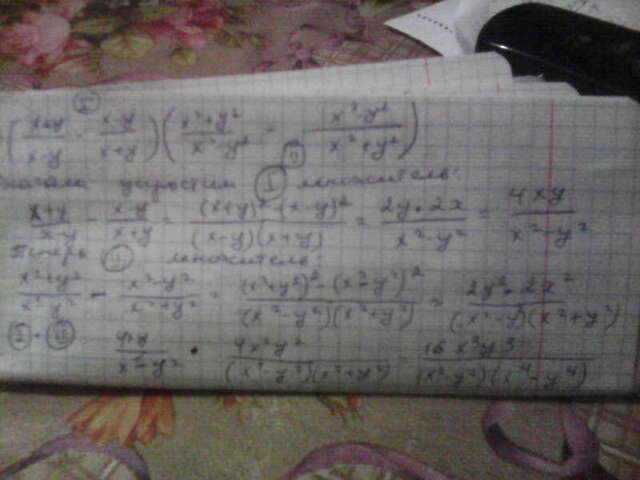 I
(x+y/x-y - x-y/x+y)(x²+y²/x²-y² - x²-y²/x²+y²)
II
упростим I множитель:
x+y/x-y - x-y/x+y = (x+y)²-(x-y)²/(x-y)(x+y) = 2y·2x/x²-y² = 4xy/x²-y²
Теперь II множитель:
x²+y²/x²-y² - x²-y²/x²+y² = (x²+y²)²-(x²-y²)²/(x²-y²)(x²+y²) = 2y²·2x²/(x²-y)(x²+y²)
I · II 4xy/x²-y² · 4x²y²/(x²-y²)(x²+y²) = 16x³y³/(x²-y²)(x⁴-y⁴)